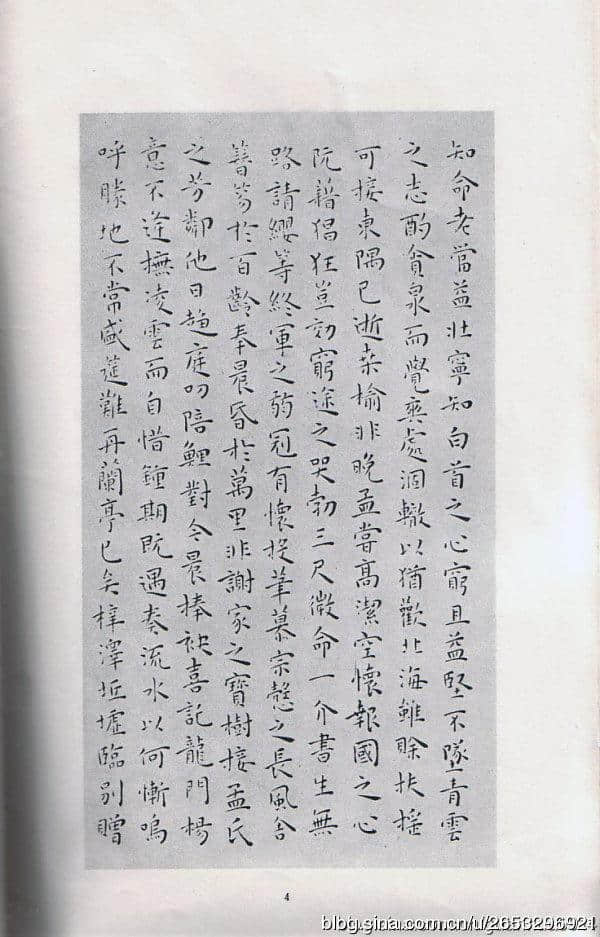 知命老當益壯寧知白首之心窮且益堅不墜青雲
之志酌貪泉而覺爽處涸轍以猶歡北海雖賒扶搖
可接東隅已逝桑榆非晚孟嘗高潔空懷報國之心
阮藉猖狂豈効窮途之哭勃三尺微命一介書生無
路請纓等終軍之弱冠有懷投筆慕宗慤之長風舍
簪笏於百齡奉晨昏於萬里非謝家之寶樹接孟氏
之芳鄰他日趨庭叨陪鯉對今晨捧袂喜託龍門楊
意不逢撫凌雲而自惜鍾期既遇奏流水以何慚嗚
呼勝地不常盛筵難再蘭亭已矣梓澤坵墟臨別贈
4
blog.sina.com.cn/u/2653296921